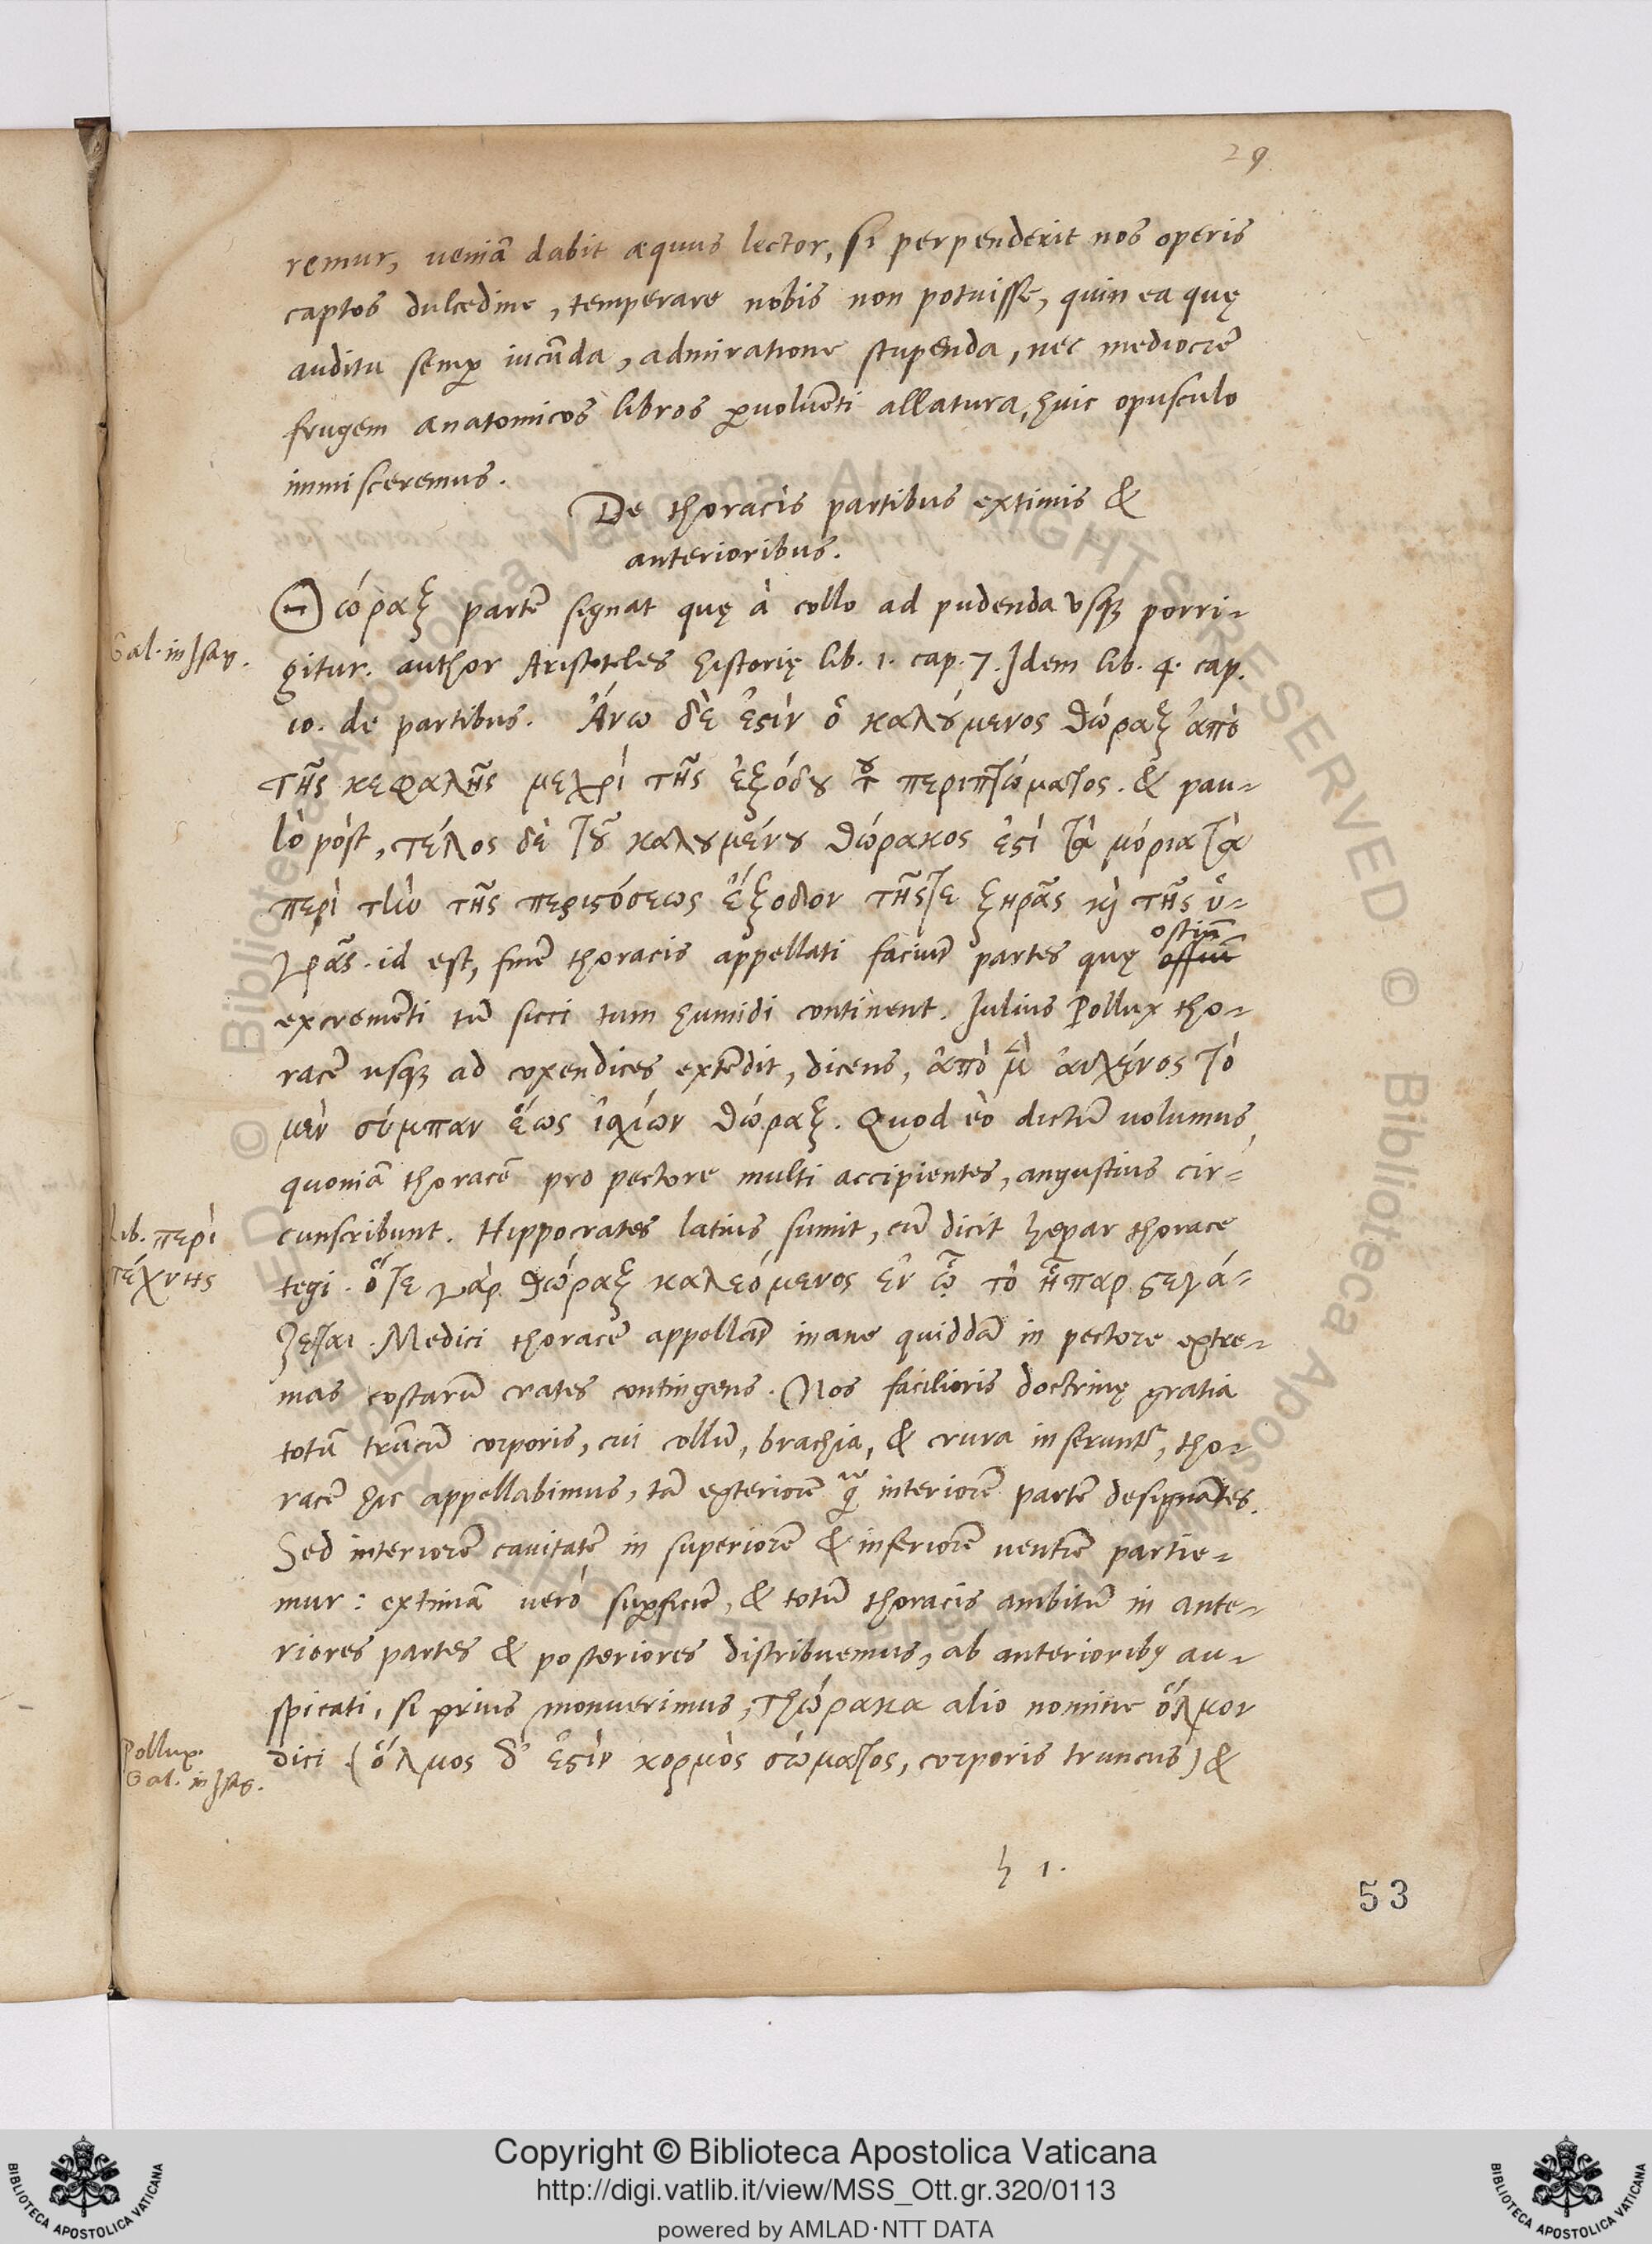 29
remur, ueniã dabit æquus lector, si perpenderit nos operis
captos dulcedine, temperare nobis non potuisse, quin ea quę
auditu semꝑ iucũda, admiratione stupenda, nec mediocrẽ
frugem anatomicos libros ꝑuoluẽti allatura, huic opusculo
immisceremus.
De thoracis partibus extimis &
anterioribus.
Θώραξ partẽ signat quę à collo ad pudenda vsqꝫ porri-
Gal. in Isag.
gitur. author Aristoteles historię lib. 1. cap. 7. Idem lib. 4. cap.
10. de partibus. Ἄνω δὲ ἐϛὶν ὁ καλȣ́μενος θώραξ ἀπὸ
τῆς κεφαλῆς μεχρὶ τῆς ἐξόδȣ τȣ͂ περιττώματος. & pau-
lò pòst, τέλος δὲ τȣ͂ καλȣμένȣ θώρακος ἐϛὶ τὰ μόρια τὰ
περὶ τὴν τῆς περιϛόσεως ἔξοδον τῆς τε ξηρᾶς κỳ τῆς ὑ-
γρᾶς. id est, finẽ thoracis appellati faciũt partes quę ostiũ
excremẽti tũ sicci tum humidi continent. Iulius Pollux tho-
racẽ usqꝫ ad coxendices extẽdit, dicens, ἀπὸ μὲν αὐχένος τὸ
μὲν σύμπαν ἕως ἰσχίων θώραξ. Quod eò dictũ uolumus,
quoniã thoracẽ pro pectore multi accipientes, angustius cir-
Lib. περὶ
τέχνης
cunscribunt. Hippocrates latius sumit, cũ dicit hepar thorace
tegi. ὅτε γὰρ θώραξ καλεόμενος ἐν ᾧ τὸ ἧπαρ ϛεγά-
ζεται. Medici thoracẽ appellãt inane quiddã in pectore extre-
mas costarũ crates contingens. Nos facilioris doctrinę gratia
totũ trũcũ corporis, cui collũ, brachia, & crura inserunt᷑, tho-
racẽ hic appellabimus, tã exteriorẽ q̃ interiorẽ partẽ designãtes.
Sed interiorẽ cauitatẽ in superiorẽ & inferiorẽ uentrẽ partie-
mur: extimã uerò suꝑficiẽ, & totũ thoracis ambitũ in ante-
riores partes & posteriores distribuemus, ab anterioribꝰ au-
spicati, si prius monuerimus, τηώρακα alio nomine ὅλμον
Pollux.
Gal. in Isag.
dici (ὅλμος δ' ἐϛὶν κορμὸς σώματος, corporis truncus) &
h 1.
53
Copyright © Biblioteca Apostolica Vaticana
http://digi.vatlib.it/view/MSS_Ott.gr.320/0113
powered by AMLAD·NTT DATA
BIBLIOTECA APOSTOLICA VATICANA
BIBLIOTECA APOSTOLICA VATICANA